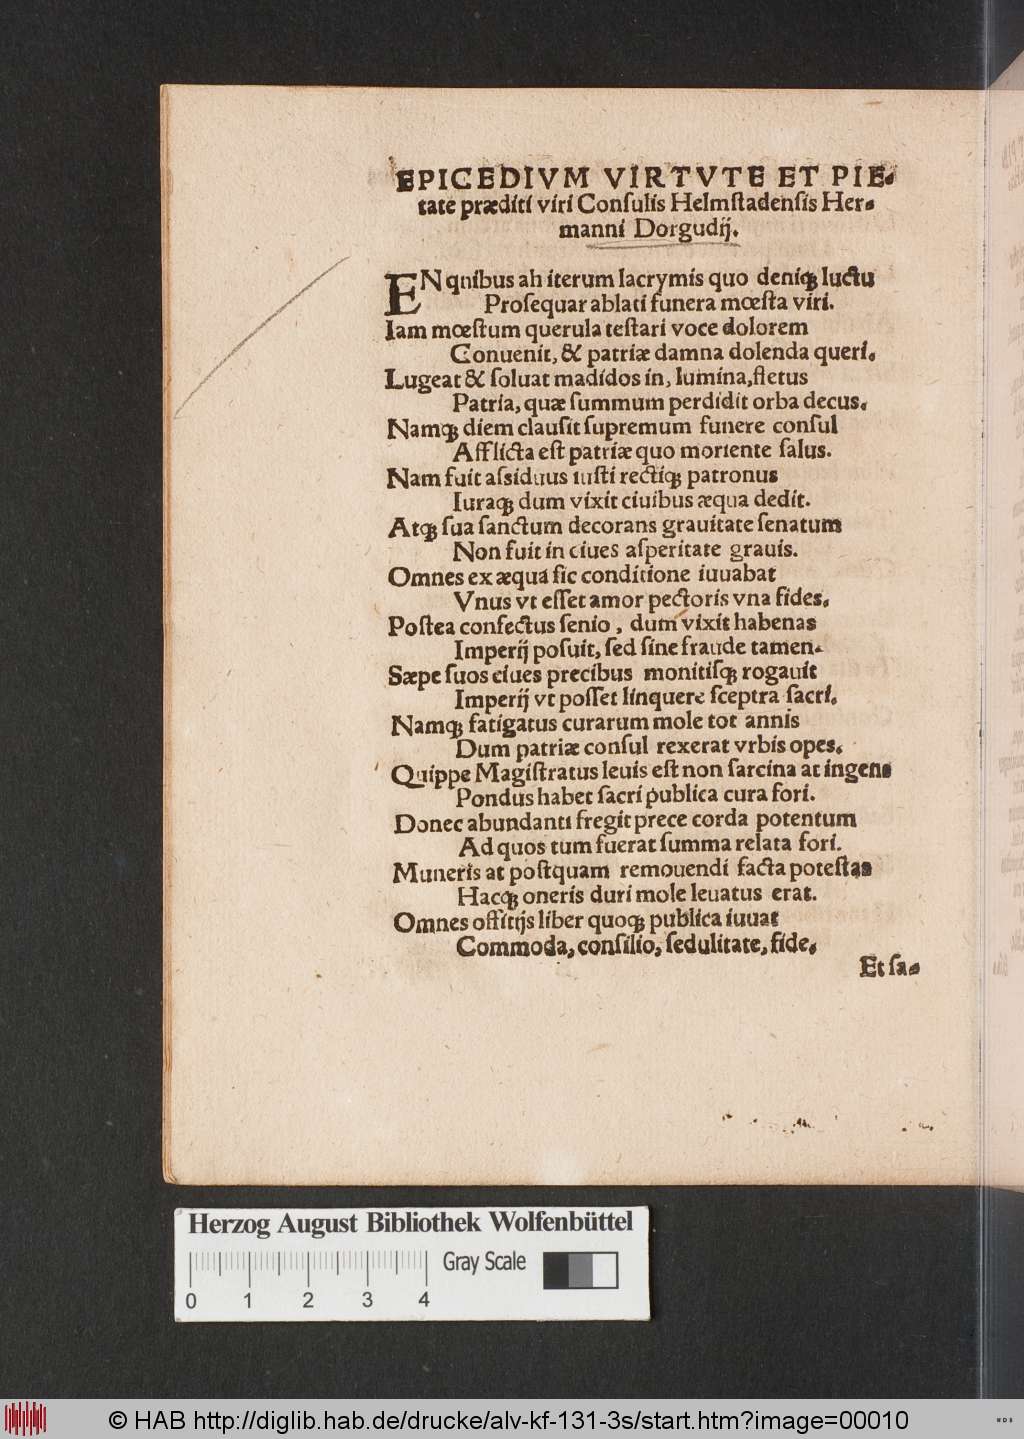 EPICEDIVM VIRTVTE ET PIE-
tate præditi viri Conſulis Helmſtadenſis Her-
manni Dorgudij.
EN qnibus ah iterum lacrymis quo deniqꝫ luctu
Proſequar ablati funera mœſta viri.
Iam mœſtum querula teſtari voce dolorem
Conuenit, & patriæ damna dolenda queri.
Lugeat & ſoluat madidos in, lumina, fletus
Patria, quæ ſummum perdidit orba decus.
Namqꝫ diem clauſit ſupremum funere conſul
Afflicta eſt patriæ quo moriente ſalus.
Nam fuit aſsiduus iuſti rectiqꝫ patronus
Iuraqꝫ dum vixit ciuibus æqua dedit.
Atqꝫ ſua ſanctum decorans grauitate ſenatum
Non fuit in ciues aſperitate grauis.
Omnes ex æqua ſic conditione iuuabat
Vnus vt eſſet amor pectoris vna fides.
Poſtea confectus ſenio, dum vixit habenas
Imperij poſuit, ſed ſine fraude tamen.
Sæpe ſuos ciues precibus monitiſqꝫ rogauit
Imperij vt poſſet linquere ſceptra ſacri.
Namqꝫ fatigatus curarum mole tot annis
Dum patriæ conſul rexerat vrbis opes.
Quippe Magiſtratus leuis eſt non ſarcina at ingens
Pondus habet ſacri publica cura fori.
Donec abundanti fregit prece corda potentum
Ad quos tum fuerat ſumma relata fori.
Muneris at poſtquam remouendi facta poteſtas
Hacqꝫ oneris duri mole leuatus erat.
Omnes offitijs liber quoqꝫ publica iuuat
Commoda, conſilio, ſedulitate, fide.
Et ſa-
Herzog August Bibliothek Wolfenbüttel
Gray Scale
0 1 2 3 4
© HAB http://diglib.hab.de/drucke/alv-kf-131-3s/start.htm?image=00010